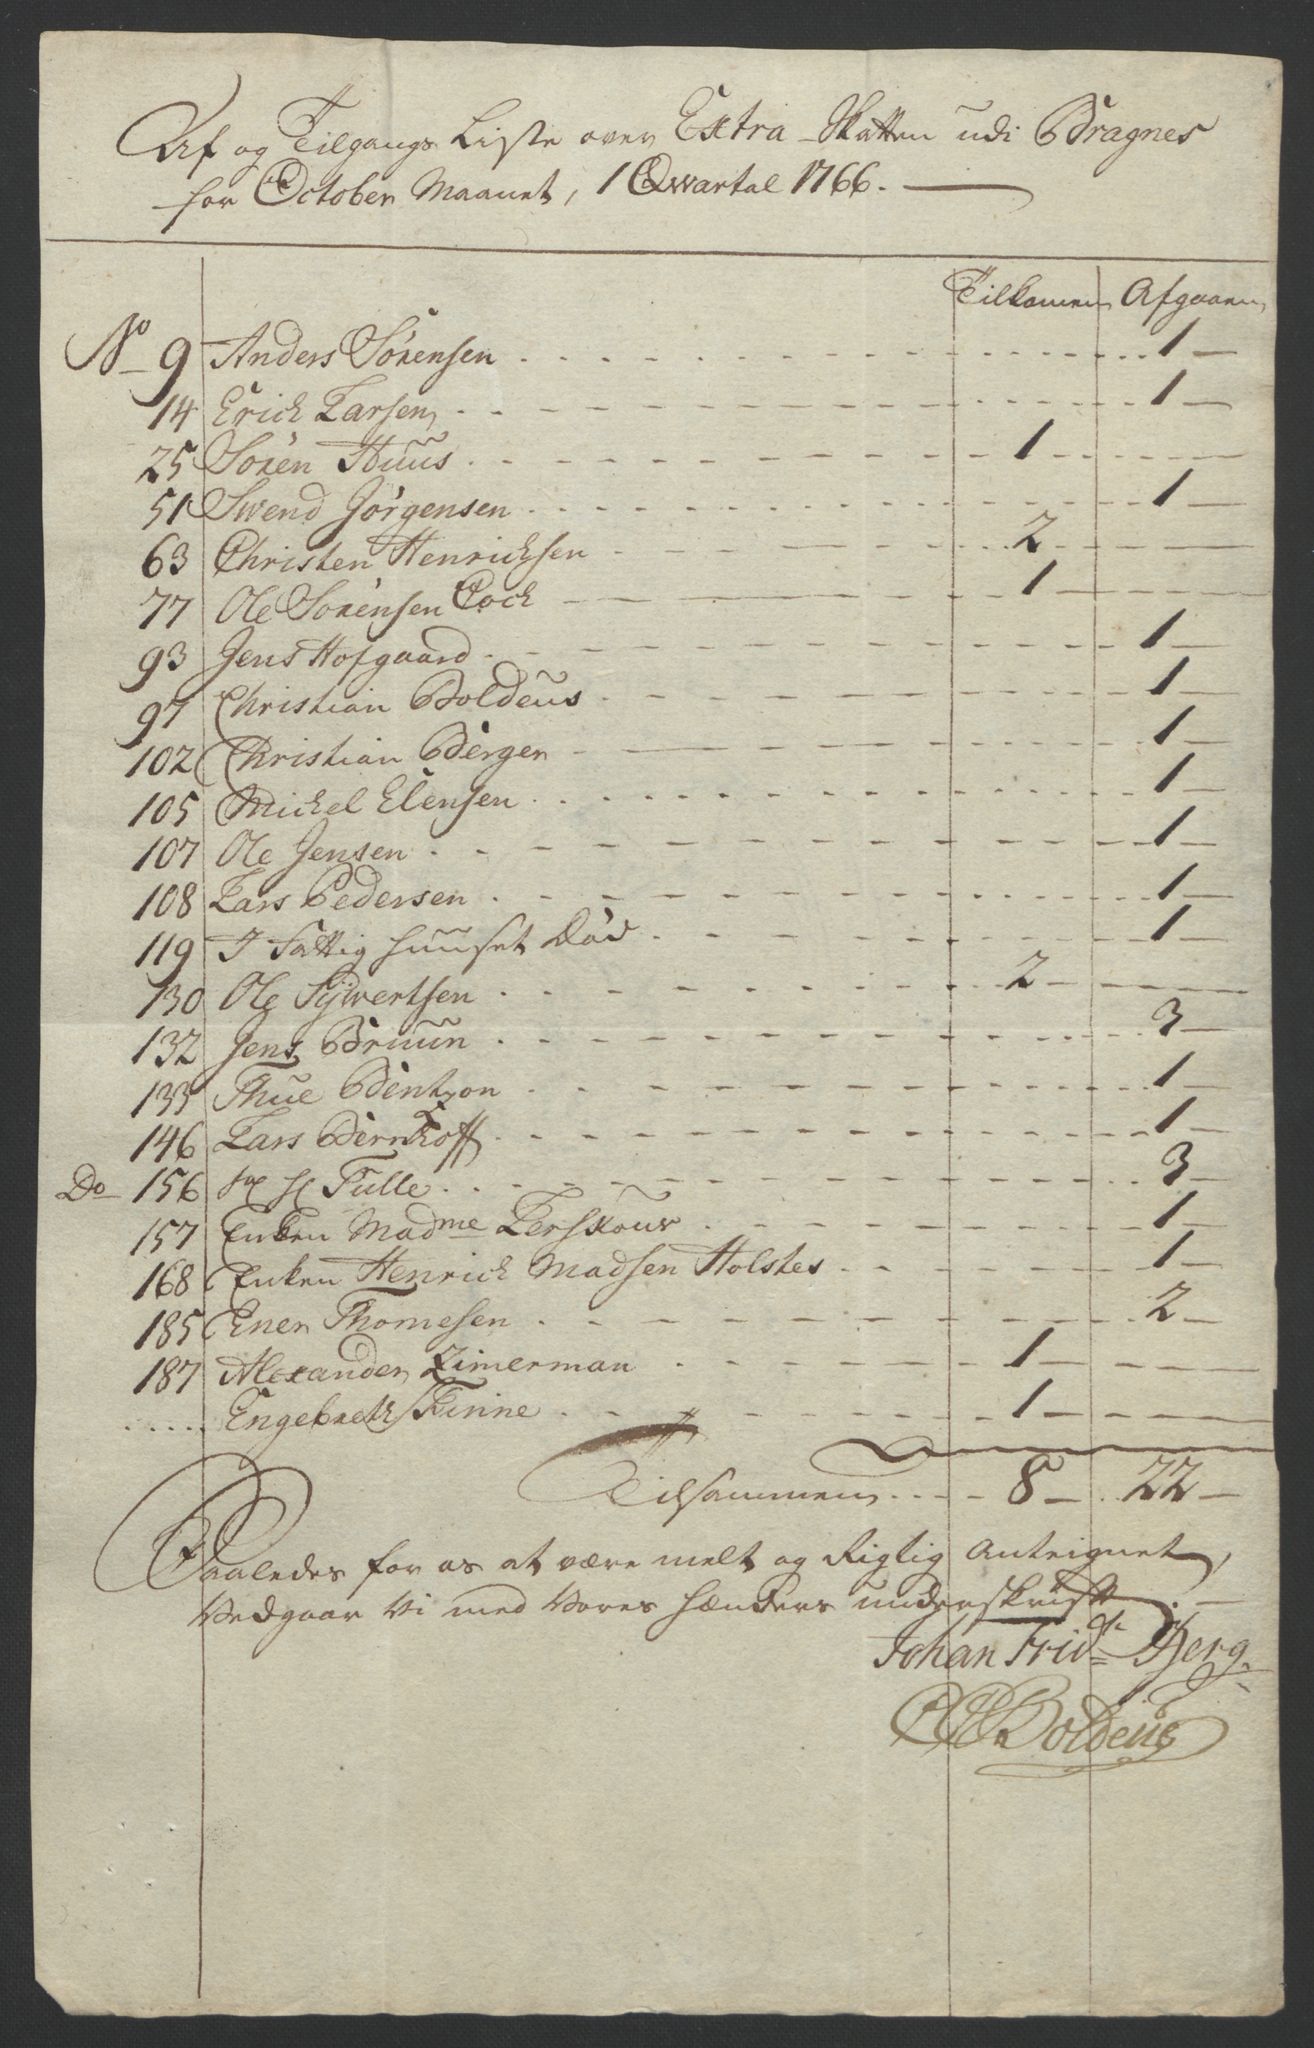 Af og Tilgangs Liste over Extra Skatten udi Bragnes
for October Maanet, 1 Qwartal 1766.
Tilkomen Afgaaen
No 9 Anders Sørensen 1
14 Erich Larsen 1
25 Søren Huus 1
51 Swend Jørgensen 1
63 Christen Henrichsen 2
77 Ole Sørensen Cock 1
93 Jens Hofgaard 1
97 Christian Boldeus 1
102 Christian Berger 1
105 Michel Elensen 1
107 Ole Jensen 1
108 Lars Pedersen 1
119 I Fattig huuset Død 1
130 Ole Sywertsen 2
132 Jens Bruun 3
133 Thue Bentzon 1
146 Lars Bernhoff 1
Do 156 Tulle 3
157 Enken Madme Lerskous 1
168 Enken Henrich Madsen Holstes 1
185 Ener Thomesen 2
187 Alexander Zimerman 1
Engebreth Finne 1
Tilsammen 8 22
Saaledes for os at være melt og Rigtig Anteignet,
Vedgaar Vi med Vores hænders underskrift.
Johan Frid Berg
Boldeus